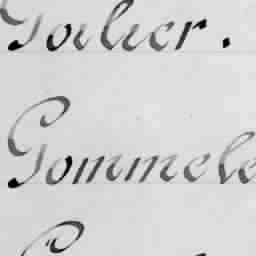 Goelier.
Gommele